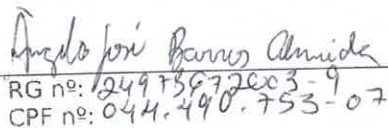 Ângelo José Barros Almeida
RG nº: 24973672003-9
CPF nº: 044.490.753-07